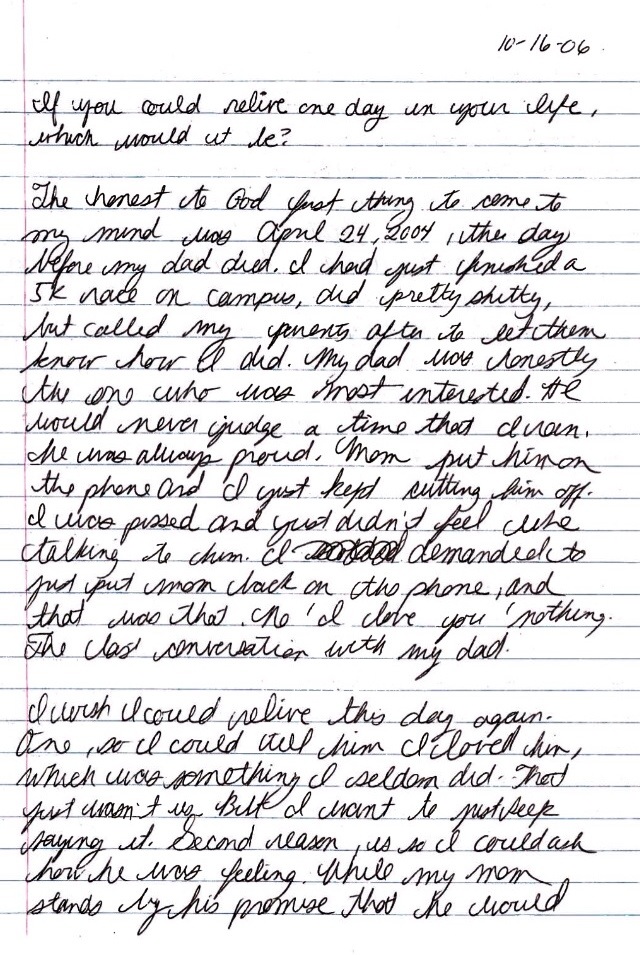 10-16-06.
If you could relive one day in your life,
which would it be?
The honest to God first thing to come to
my mind was April 24, 2004, the day
before my dad died. I had just finished a
5k race on campus, did pretty shitty,
but called my parents after to let them
know how I did. My dad was honestly
the one who was most interested. He
would never judge a time that I ran.
he was always proud. Mom put him on
the phone and I just kept cutting him off.
I was pissed and just didn't feel like
talking to him. I demanded to
just put mom back on the phone, and
that was that. No 'I love you' nothing.
The last conversation with my dad.
I wish I could relive this day again.
One, so I could tell him I loved him,
which was something I seldom did. That
just wasn't us. But I want to just keep
saying it. Second reason, is so I could ask
how he was feeling. While my mom
stands by his promise that he would